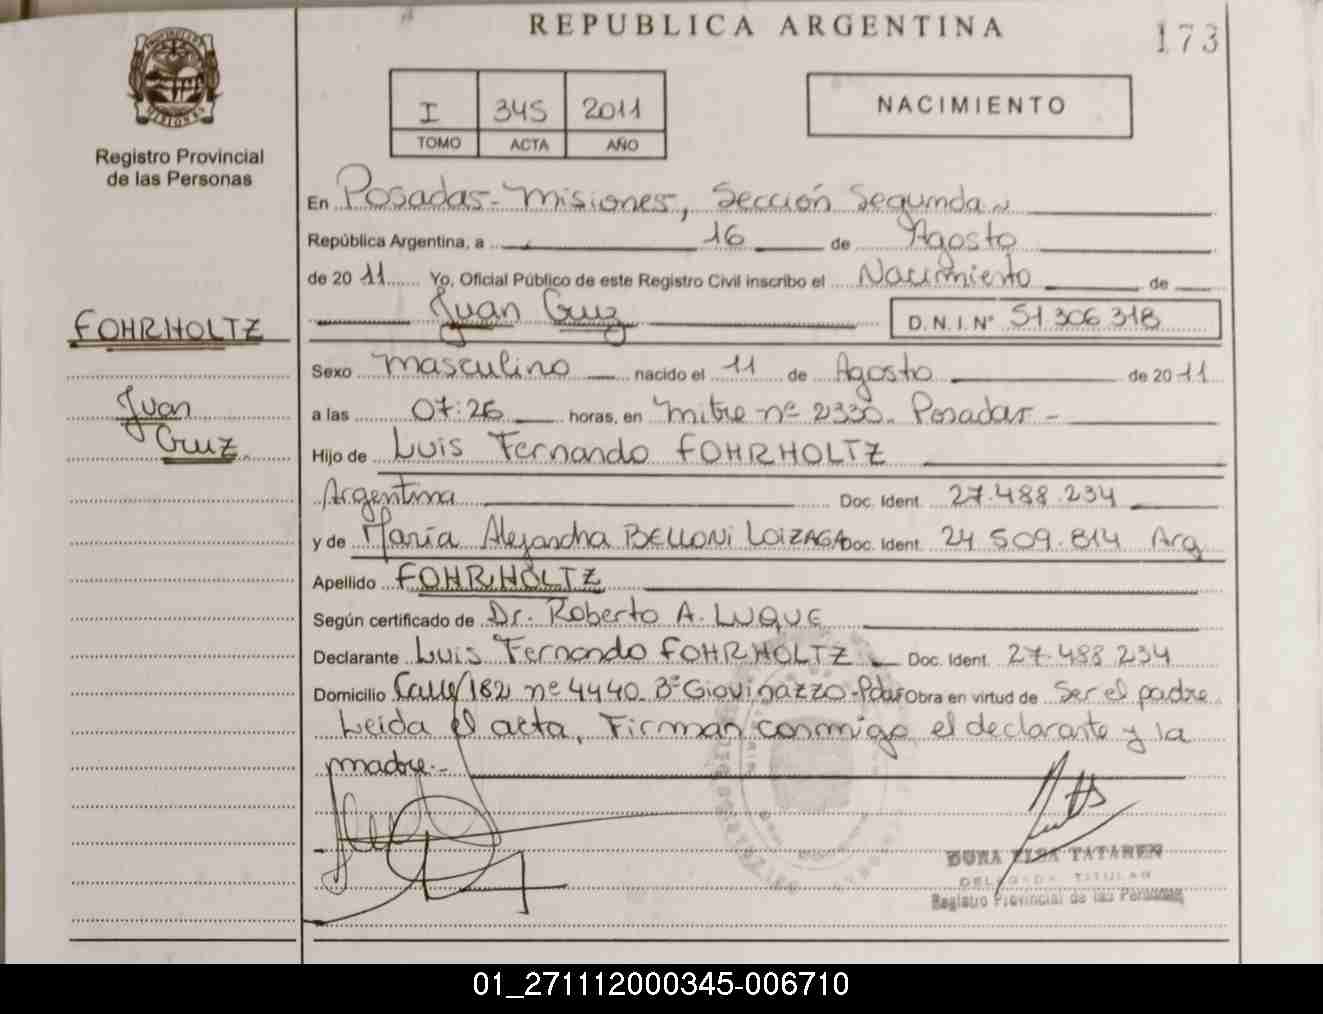 REPUBLICA ARGENTINA
173
Registro Provincial
de las Personas
I 345 2011
TOMO ACTA AÑO
NACIMIENTO
En Posadas - Misiones, Sección Segunda
República Argentina, a 16 de Agosto
de 2011 Yo, Oficial Público de este Registro Civil inscribo el Nacimiento de
Juan Cruz D.N.I. Nº 51.306.318
FOHRHOLTZ
Juan
Cruz
Sexo Masculino nacido el 11 de Agosto de 2011
a las 07:26 horas, en Mitre nº 2330. Posadas -
Hijo de Luis Fernando FOHRHOLTZ
Argentina Doc. Ident. 27.488.234
y de María Alejandra BELLONI LOIZAGA Doc. Ident. 24 509.814 Arg
Apellido FOHRHOLTZ
Según certificado de Dr. Roberto A. LUQUE
Declarante Luis Fernando FOHRHOLTZ Doc. Ident. 27.488 234
Domicilio Calle 182 nº 4440 Bº Giovinazzo - Pdas Obra en virtud de Ser el padre
Leida el acta, Firman conmigo el declarante y la
madre.-
DELEGADA TITULAR
Registro Provincial de las Personas
01_271112000345-006710